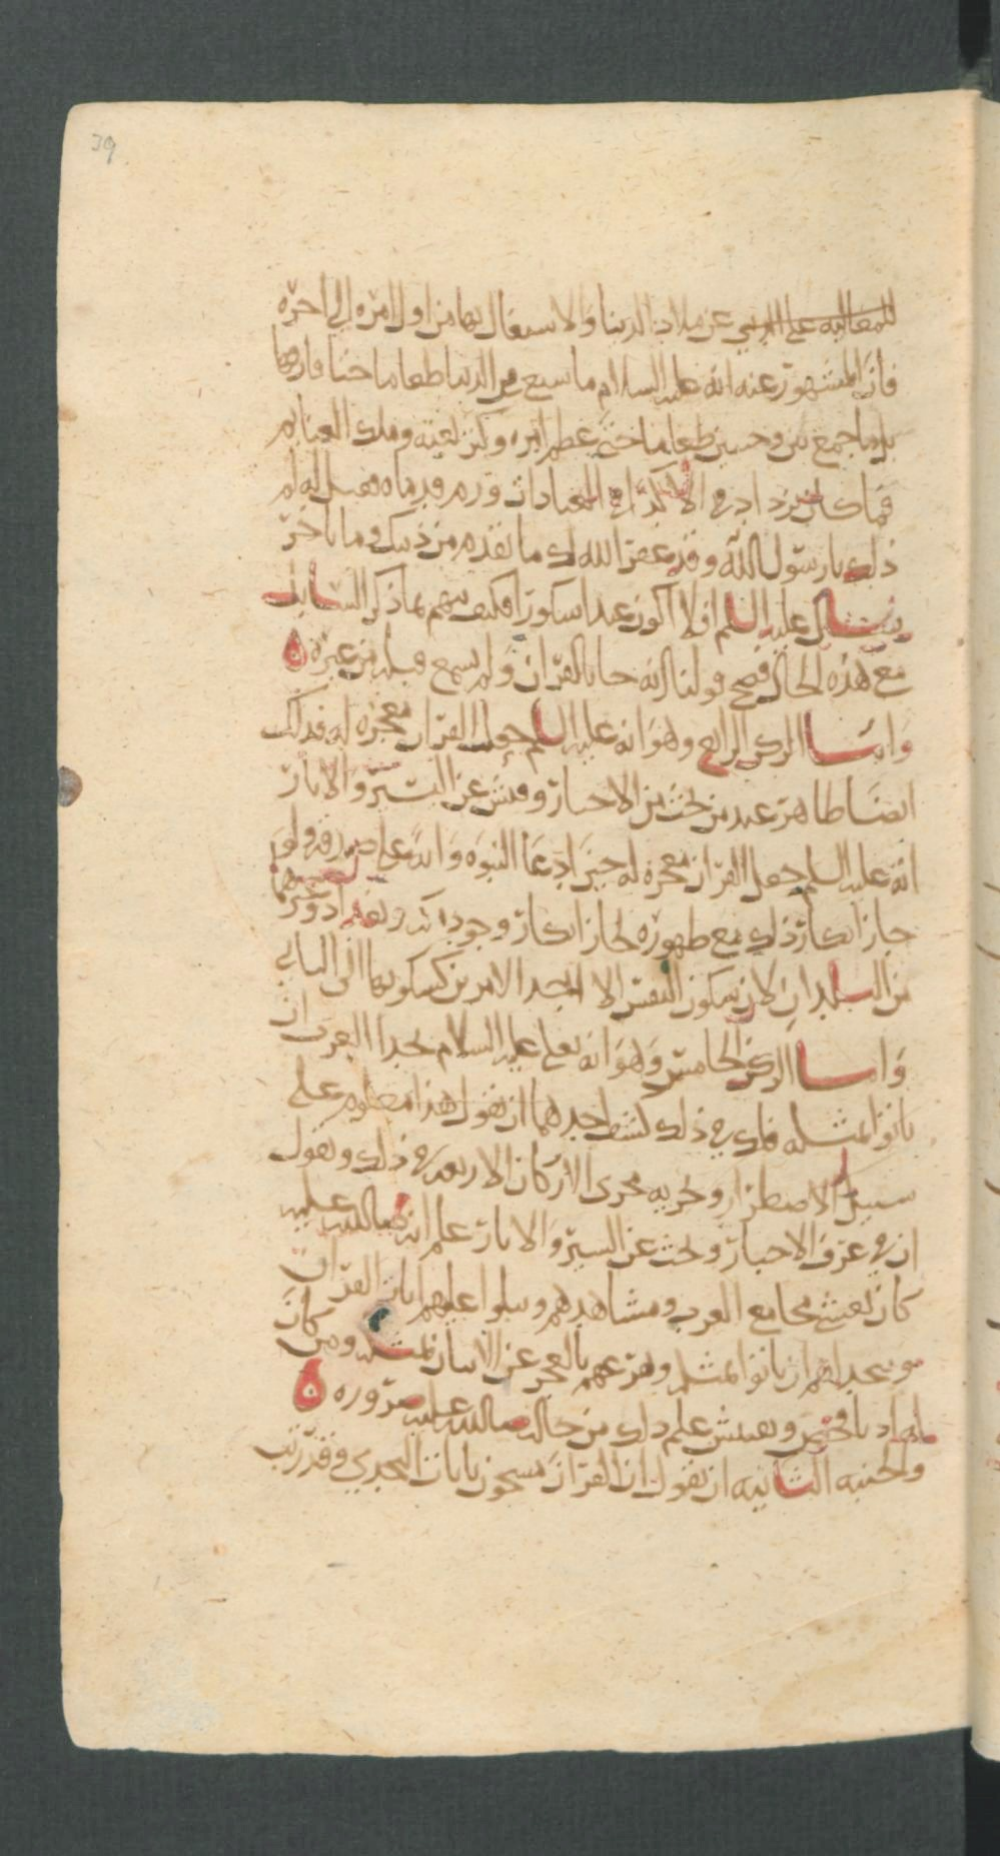 39
عن ملاذ الدنيا والاشتغال بها من اول امره الى اخره
فان المشهور عنه انه عليه السلام ما شبع من الدنيا طعاما حتى فارقها
بل ما جمع بين وجبتين طعاما حتى عظم امره وملك الغنايم
فما كان يزداد في العبادات ورم قدماه فقيل له لم
ذلك يا رسول الله وقد غفر الله لك ما تقدم من ذنبك وما تاخر
فقال عليه السلم افلا اكون عبدا شكورا فكيف يتهم بما ذكر السايل
مع هذه الحال فصح قولنا انه جا بالقران ولم يسمع قبله من غيره
واما الركن الرابع وهو انه عليه السلم جعل القران معجزة له فذلك
ايضا ظاهر عند من بحث عن الاخبار وفتش عن السير والاثار
انه عليه السلم جعل القران معجزة له حين ادعا النبوه على صدقه ولو
جاز انكار ذلك مع ظهوره لجاز انكار وجود مكه وبغداد وغيرهما
من البلدان لان سكون النفس الى احد الامرين كسكونها الى الثاني
واما الركن الخامس وهو انه تعلى عليه السلام تحدا العرب ان
ياتوا بمثله فلك في ذلك احدهما ان نقول هذا معلوم على
سبيل الاضطرار ونجريه مجرى الاركان الاربعه في ذلك ونقول
ان من عرف الاخبار وبحث عن السير والاثار علم انه صلى الله عليه
كان يغشى مجامع العرب ومشاهدهم ويتلوا عليهم ايات القران
ويتحداهم ان ياتوا بمثله ويقرعهم بالعجز عن الاتيان بمثله ومن كان
له ادنا وتفتيش علم ذلك من حاله صلى الله عليه ضروره
والجنبه الثانيه ان نقول ان القران مشحون بايات التحدي وقد رتب